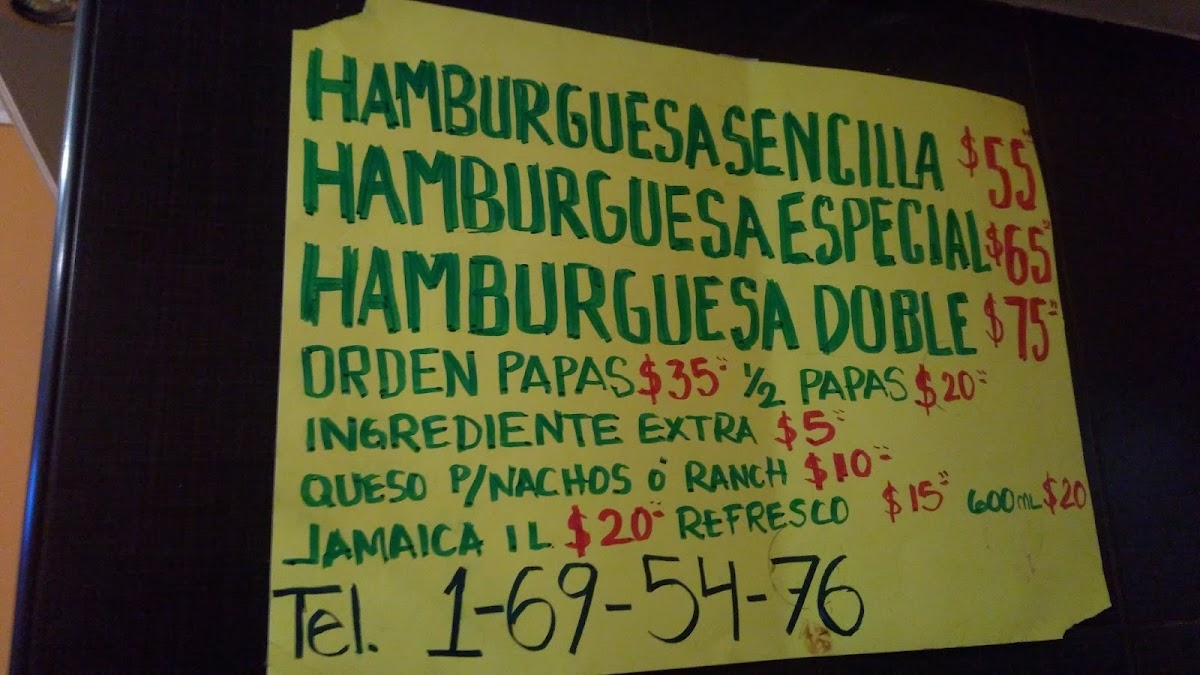 HAMBURGUESA SENCILLA $55
HAMBURGUESA ESPECIAL $65
HAMBURGUESA DOBLE $75
ORDEN PAPAS $35 ½ PAPAS $20
INGREDIENTE EXTRA $5
QUESO P/NACHOS Ó RANCH $10
JAMAICA 1L $20 REFRESCO $15 600mL $20
Tel. 1-69-54-76